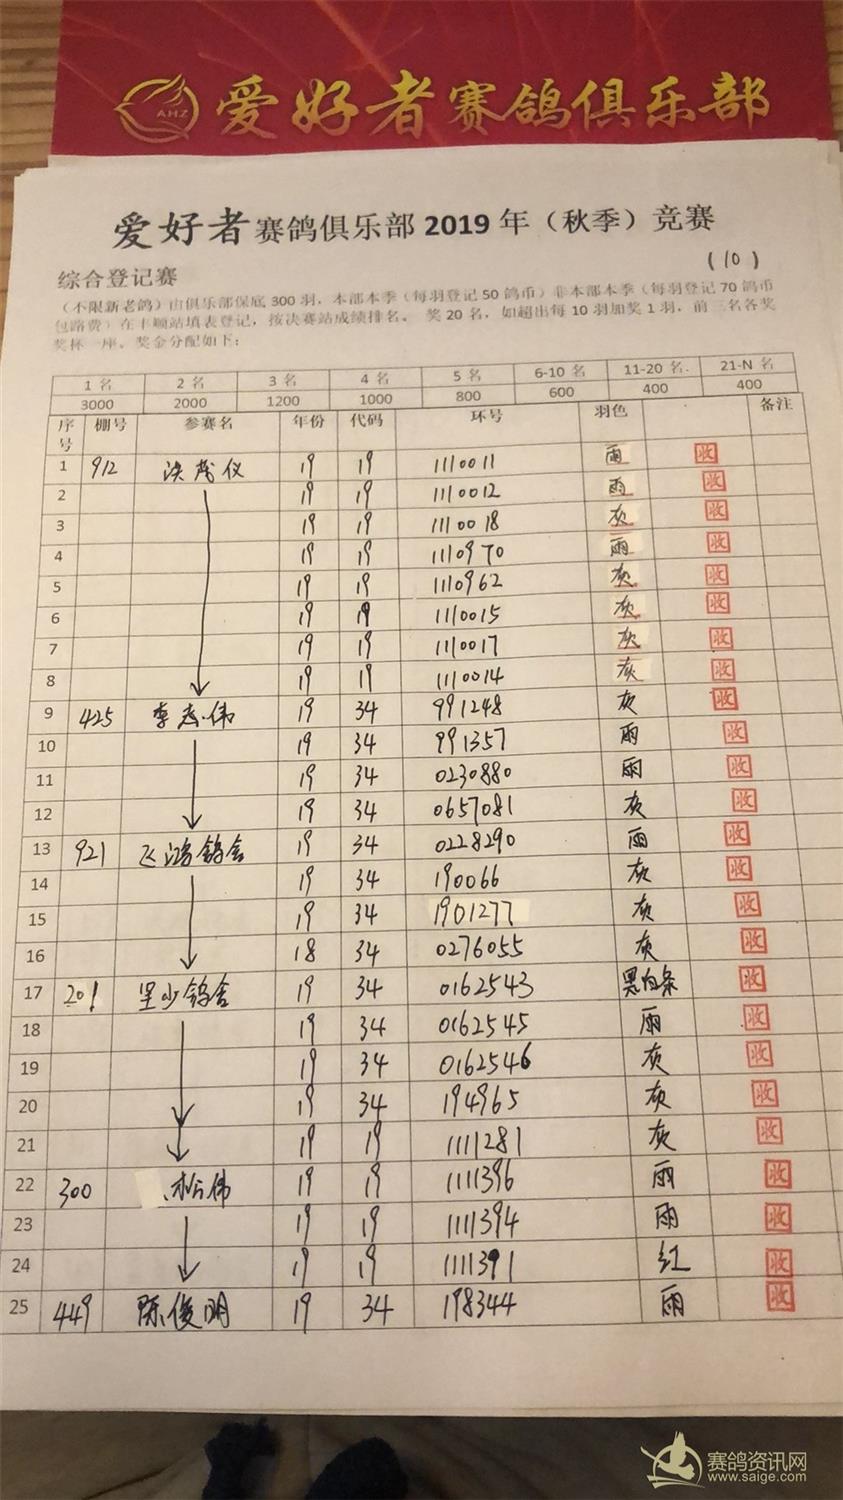 AHZ 爱好者赛鸽俱乐部
爱好者赛鸽俱乐部 2019 年（秋季）竞赛
(10)
综合登记赛
（不限新老鸽）由俱乐部保底 300 羽，本部本季（每羽登记 50 鸽币）非本部本季（每羽登记 70 鸽币
包路费）在丰顺站填表登记，按决赛站成绩排名。 奖 20 名，如超出每 10 羽加奖 1 羽，前三名各奖
奖杯一座。奖金分配如下：
1 名 2 名 3 名 4 名 5 名 6-10 名 11-20 名. 21-N 名
3000 2000 1200 1000 800 600 400 400
序号 棚号 参赛名 年份 代码 环号 羽色 备注
1 912 洪茂仪 19 19 1110011 雨 收
2 19 19 1110012 雨 收
3 19 19 1110018 灰 收
4 19 19 1110970 雨 收
5 19 19 1110962 灰 收
6 19 19 1110015 灰 收
7 19 19 1110017 灰 收
8 19 19 1110014 灰 收
9 425 李志伟 19 34 991248 灰 收
10 19 34 991357 雨 收
11 19 34 0230880 雨 收
12 19 34 0657081 灰 收
13 921 飞鸿鸽舍 19 34 0228290 雨 收
14 19 34 190066 灰 收
15 19 34 1901277 灰 收
16 18 34 0276055 灰 收
17 201 坚少鸽舍 19 34 0162543 黑白条 收
18 19 34 0162545 雨 收
19 19 34 0162546 灰 收
20 19 34 194965 灰 收
21 19 19 1111281 灰 收
22 300 松伟 19 19 1111396 雨 收
23 19 19 1111394 雨 收
24 19 19 1111391 红 收
25 449 陈俊明 19 34 198344 雨 收
赛鸽资讯网
www.saige.com